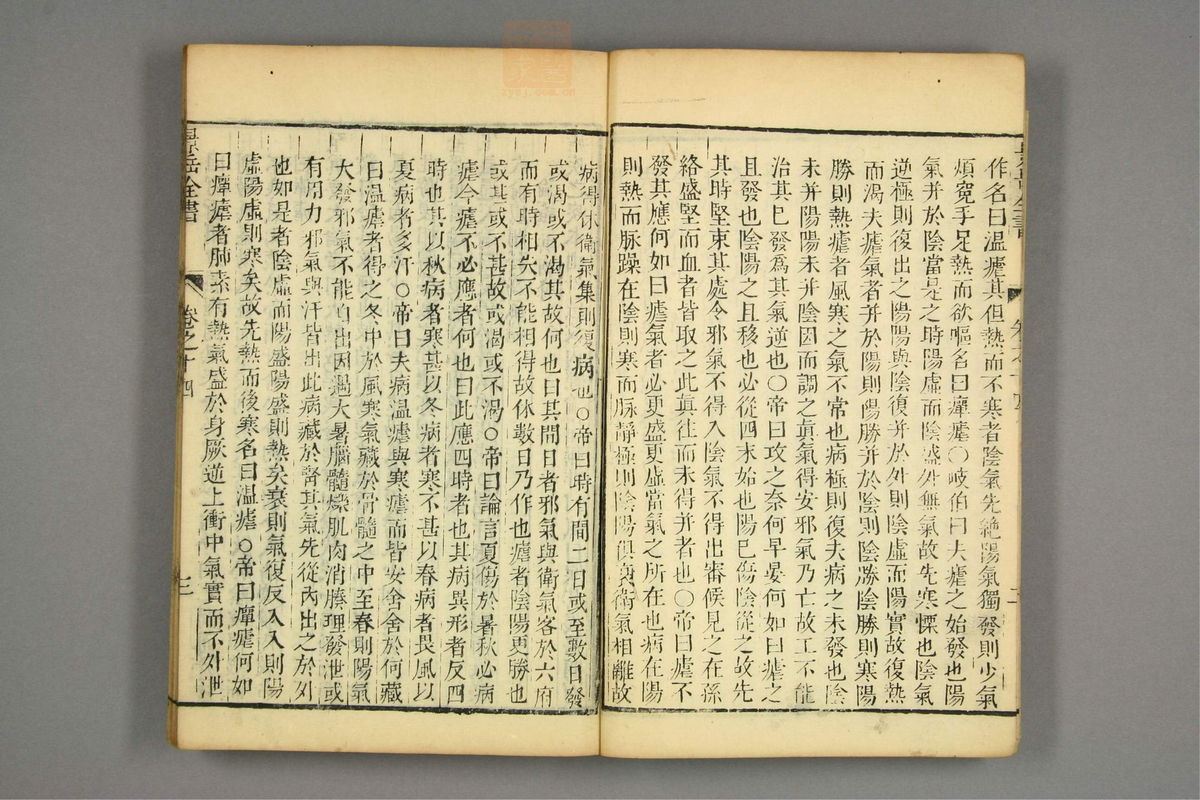 作名曰温瘧其但熱而不寒者陰氣先絶陽氣獨發則少氣
煩寃手足熱而欲嘔名曰癉瘧○岐伯曰夫瘧之始發也陽
氣并於陰當是之時陽虛而陰盛外無氣故先寒慄也陰氣
逆極則復出之陽陽與陰復并於外則陰虛而陽實故復熱
而渴夫瘧氣者并於陽則陽勝并於陰則陰勝陰勝則寒陽
勝則熱瘧者風寒之氣不常也病極則復夫病之未發也陰
未并陽陽未并陰因而調之眞氣得安邪氣乃亡故工不能
治其巳發爲其氣逆也○帝曰攻之奈何早晏何如曰瘧之
且發也陰陽之且移也必從四末始也陽巳傷陰從之故先
其時堅束其處令邪氣不得入陰氣不得出審候見之在孫
絡盛堅而血者皆取之此眞往而未得并者也○帝曰瘧不
發其應何如曰瘧氣者必更盛更虛當氣之所在也病在陽
則熱而脉躁在陰則寒而脉靜極則陰陽俱衰衛氣相離故
病得休衛氣集則復病也○帝曰時有間二日或至數日發
或渴或不渴其故何也曰其間日者邪氣與衛氣客於六府
而有時相失不能相得故休數日乃作也瘧者陰陽更勝也
或甚或不甚故或渴或不渴○帝曰論言夏傷於暑秋必病
瘧今瘧不必應者何也曰此應四時者也其病異形者反四
時也其以秋病者寒甚以冬病者寒不甚以春病者畏風以
夏病者多汗○帝曰夫病温瘧與寒瘧而皆安舍舍於何藏
曰温瘧者得之冬中於風寒氣藏於骨髓之中至春則陽氣
大發邪氣不能自出因遇大暑腦髓爍肌肉消腠理發泄或
有用力邪氣與汗皆出此病藏於腎其氣先從內出之於外
也如是者陰虛而陽盛陽盛則熱矣衰則氣復反入入則陽
虛陽虛則寒矣故先熱而後寒名曰温瘧○帝曰癉瘧何如
曰癉瘧者肺素有熱氣盛於身厥逆上衝中氣實而不外泄
景岳全書 卷之十四 三